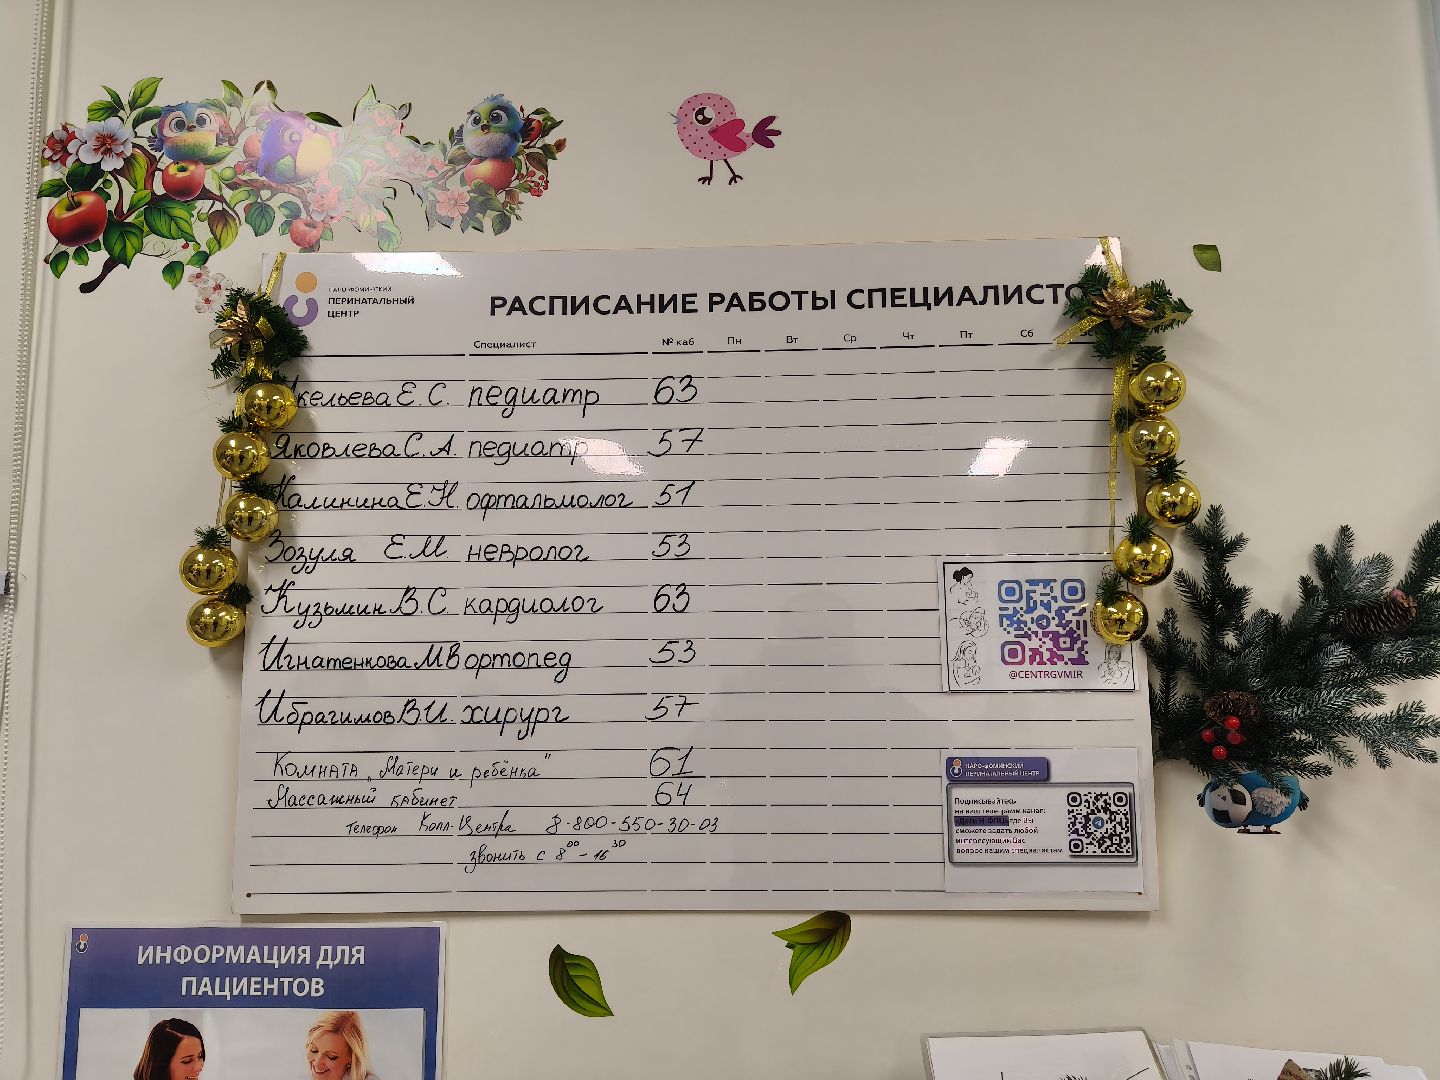 НАРО-ФОМИНСКИЙ
ПЕРИНАТАЛЬНЫЙ
ЦЕНТР
РАСПИСАНИЕ РАБОТЫ СПЕЦИАЛИСТО
Специалист № каб Пн Вт Ср Чт Пт Сб
кельева Е. С. педиатр 63
Яковлева С. А. педиатр 57
Калинина Е. Н. офтальмолог 51
Зозуля Е. М. невролог 53
Кузьмин В. С. кардиолог 63
Игнатенкова М В ортопед 53
Ибрагимов В. И. хирург 57
Комната „Матери и ребёнка" 61
Массажный кабинет 64
Телефон Колл-Центра 8-800-550-30-03
звонить с 8 00 - 16 30
@CENTRGVMIR
НАРО-ФОМИНСКИЙ
ПЕРИНАТАЛЬНЫЙ ЦЕНТР
Подписывайтесь
на наш телеграмм канал:
«Дети Н-ФПЦ» где Вы
сможете задать любой
интересующий Вас
вопрос нашим специалистам
ИНФОРМАЦИЯ ДЛЯ
ПАЦИЕНТОВ